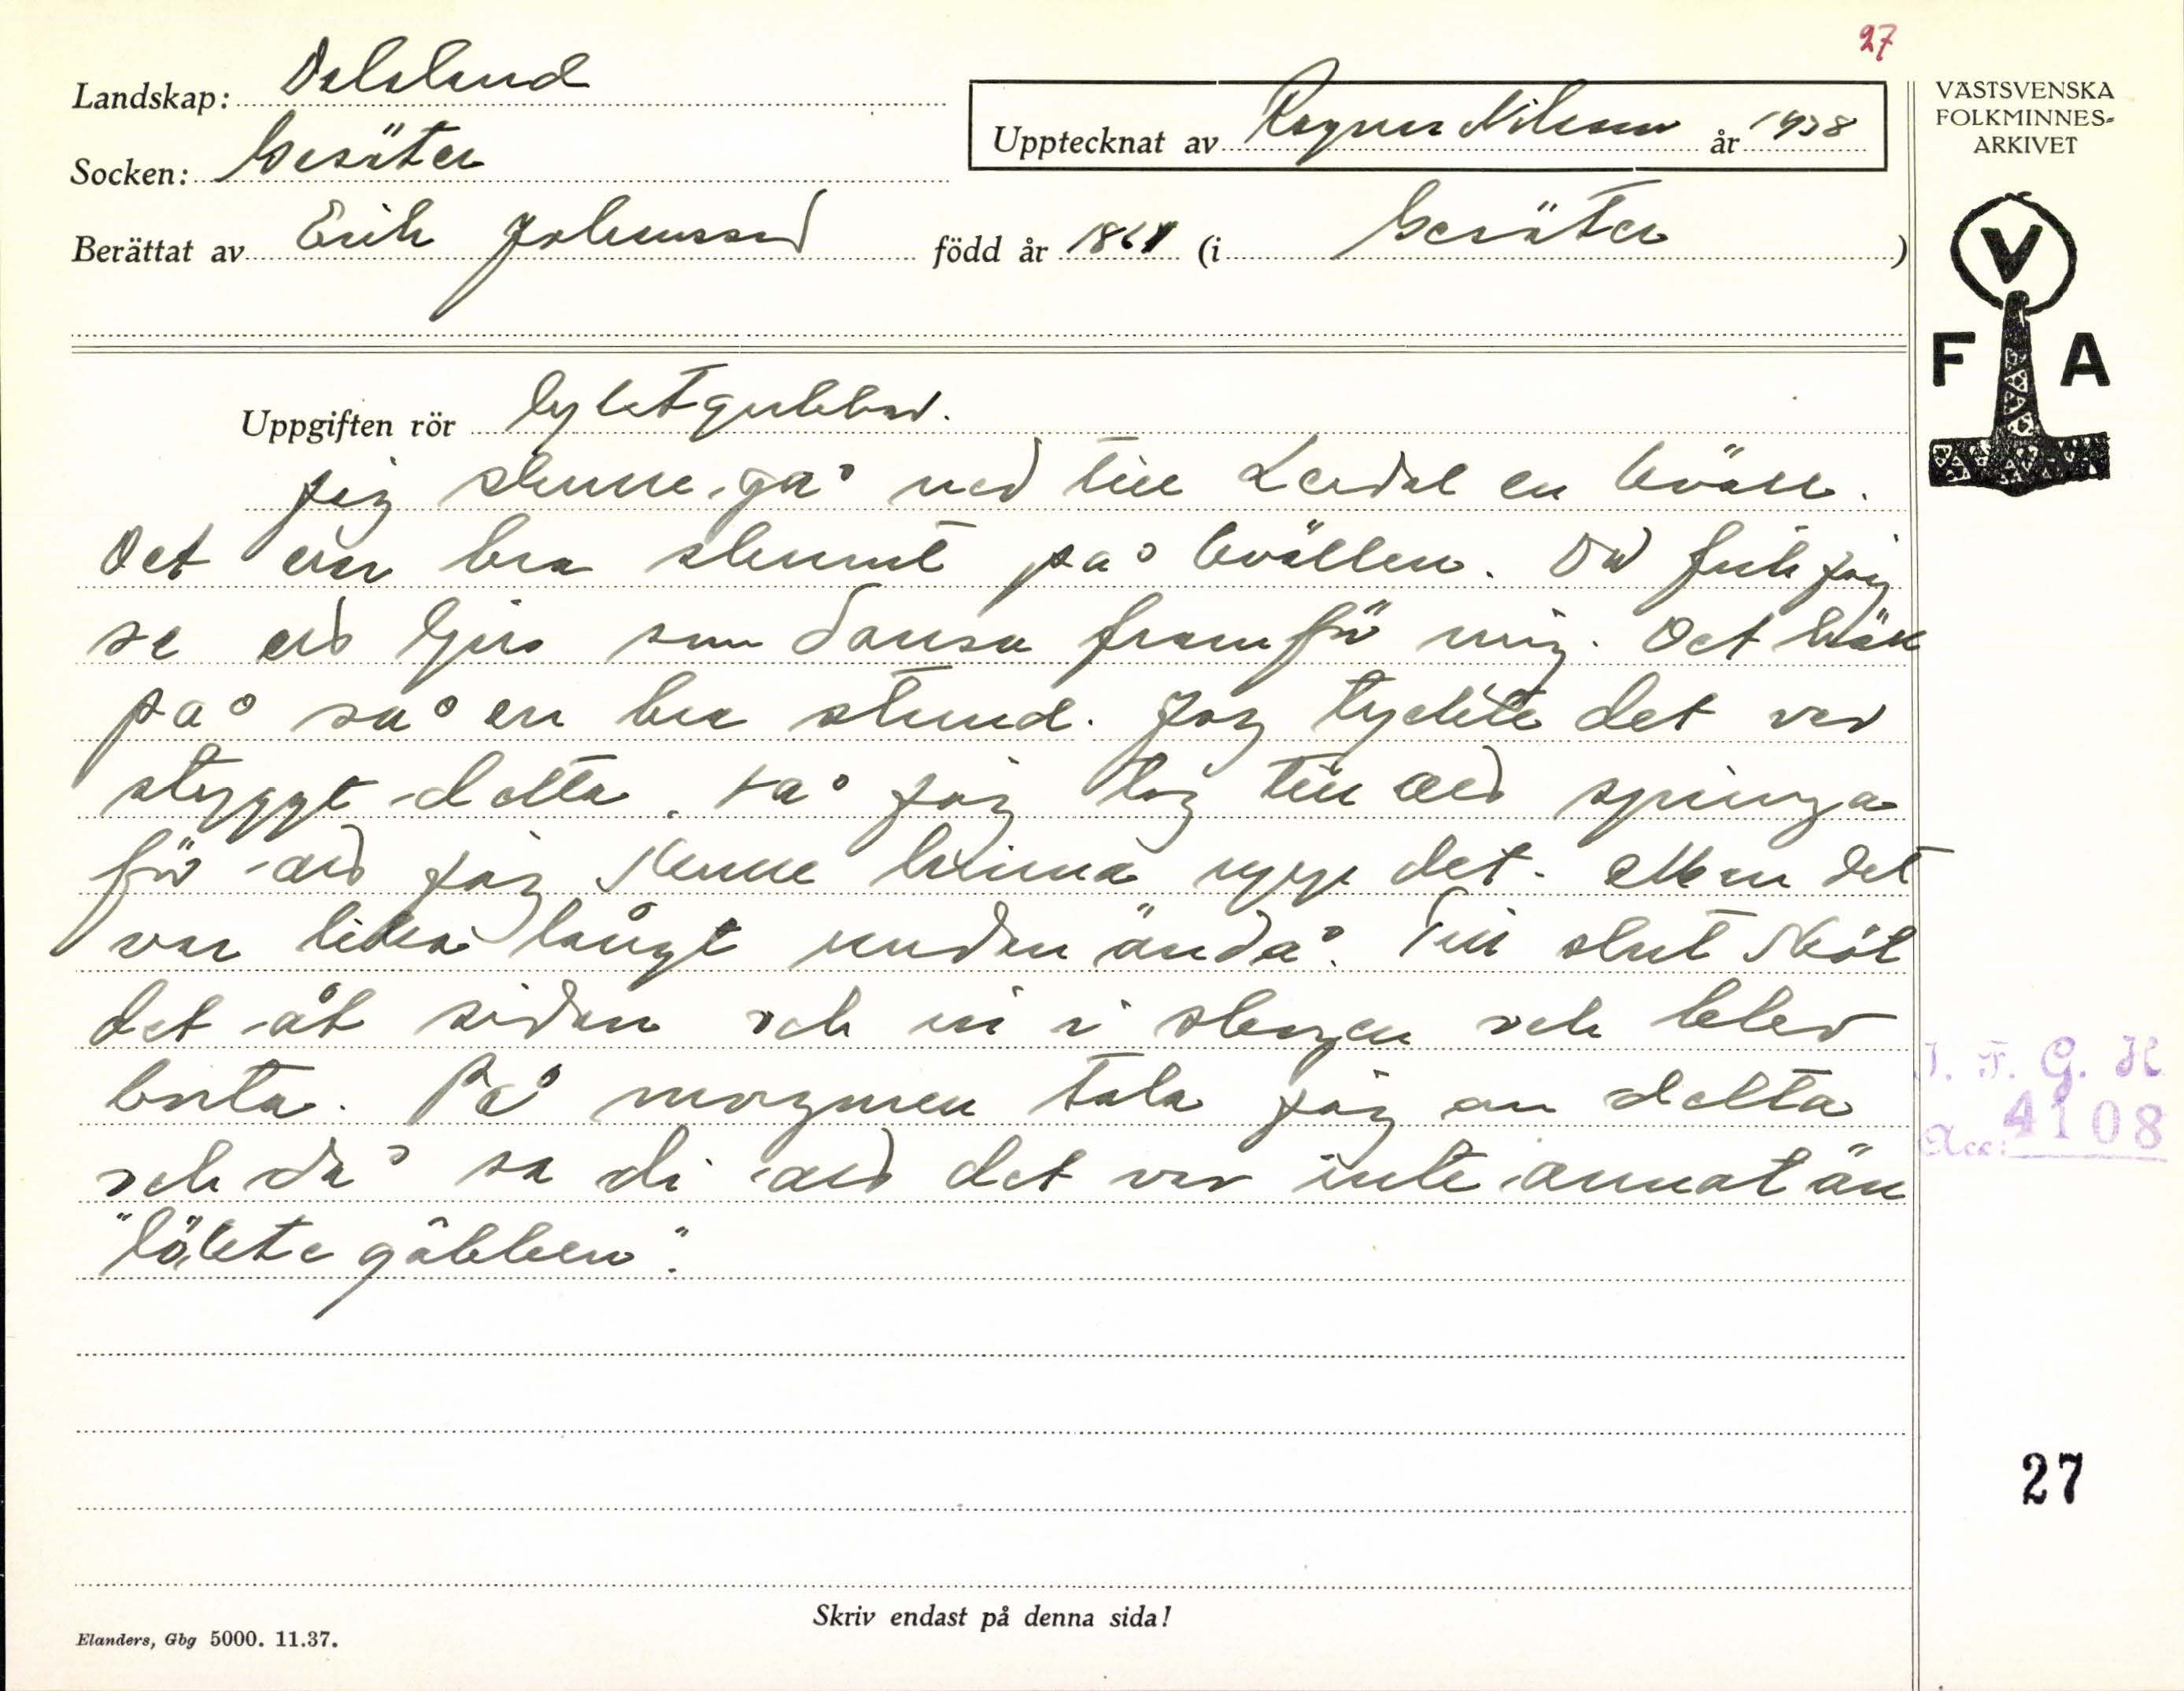 27
Landskap: Dalsland
Socken: Gesäter
Upptecknat av Ragnar Nilsson år 1938
Berättat av Erik Johansson född år 186 (i Gesäter)
VÄSTSVENSKA
FOLKMINNES-
ARKIVET
V
F A
Uppgiften rör lyktgubbar.
Jag skulle gå ned till Lerdal en kväll.
Det var bra skumt på kvällen. Då fick jag
se ett ljus som dansa framför mig. Det höll
på så en bra stund. Jag tyckte det var
styggt detta, så jag tog till att springa
för att jag skulle hinna upp det. Men det
var lika långt undan ändå. Till slut sköt
det åt sidan och in i skogen och blev
borta. På morgonen tala jag om detta
och då sa di att det var inte annat än
"löktegôbben".
I. F. G. H
Acc: 4108
27
Skriv endast på denna sida!
Elanders, Gbg 5000. 11.37.